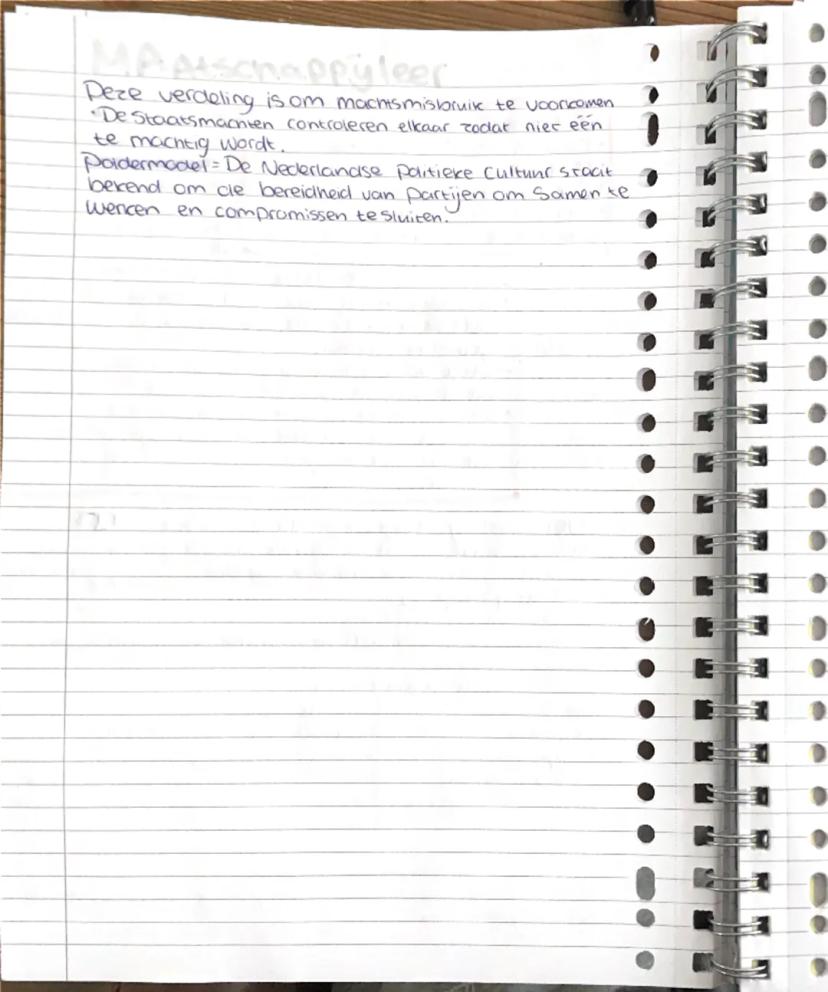 MAatschappijleer
Deze verdeling is om machtsmisbruik te voorkomen
· De Staatsmachten controleren elkaar zodat niet één
te machtig wordt.
Poldermodel = De Nederlandse Politieke Cultuur staat
bekend om de bereidheid van Partijen om Samen te
werken en compromissen te sluiten.